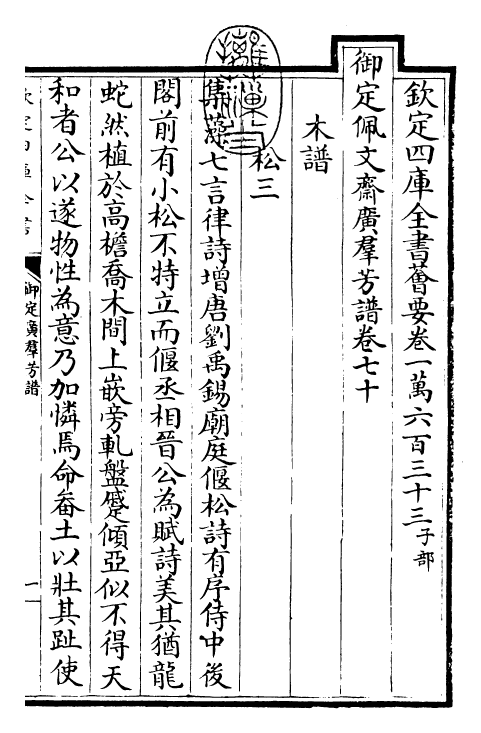 欽定四庫全書薈要卷一萬六百三十三子部
御定佩文齋廣羣芳譜卷七十
木譜
松三
集藻七言律詩增唐劉禹錫廟庭偃松詩有序侍中後
閣前有小松不特立而偃丞相晉公為賦詩美其猶龍
蛇然植於高檐喬木間上嵌旁軋盤蹙傾亞似不得天
和者公以遂物性為意乃加憐焉命畚土以壯其趾使
欽定四庫全書
御定廣羣芳譜
一